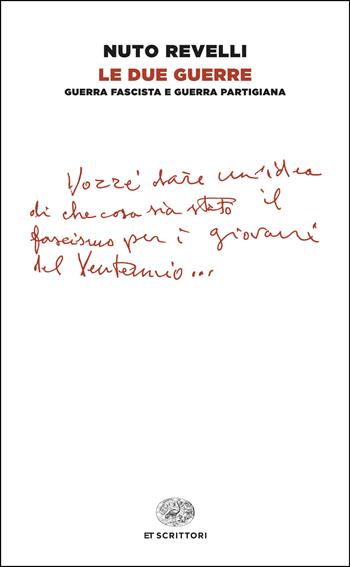 NUTO REVELLI
LE DUE GUERRE
GUERRA FASCISTA E GUERRA PARTIGIANA
Vorrei dare un'idea
di che cosa sia stato il
fascismo per i giovani
del Ventennio...
ET SCRITTORI